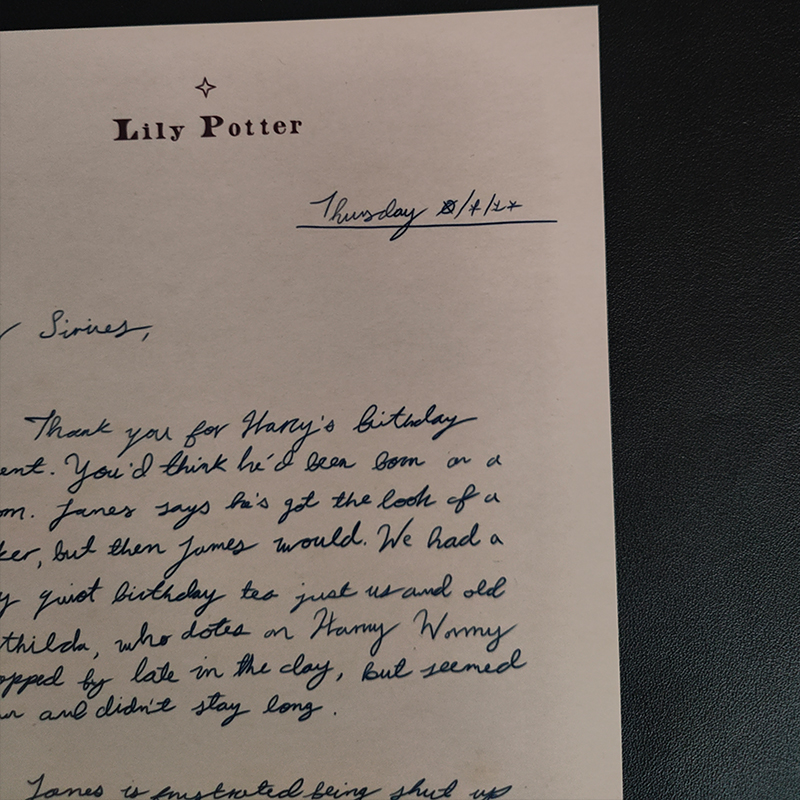 Lily Potter
Thursday
Sirius,
Thank you for Harry's birthday
ent. You'd think he'd been born on a
om. James says he's got the look of a
ker, but then James would. We had a
y quiet birthday tea just us and old
thilda, who dotes on Harry Wormy
opped by late in the day, but seemed
and didn't stay long.
James is frustrated being shut up